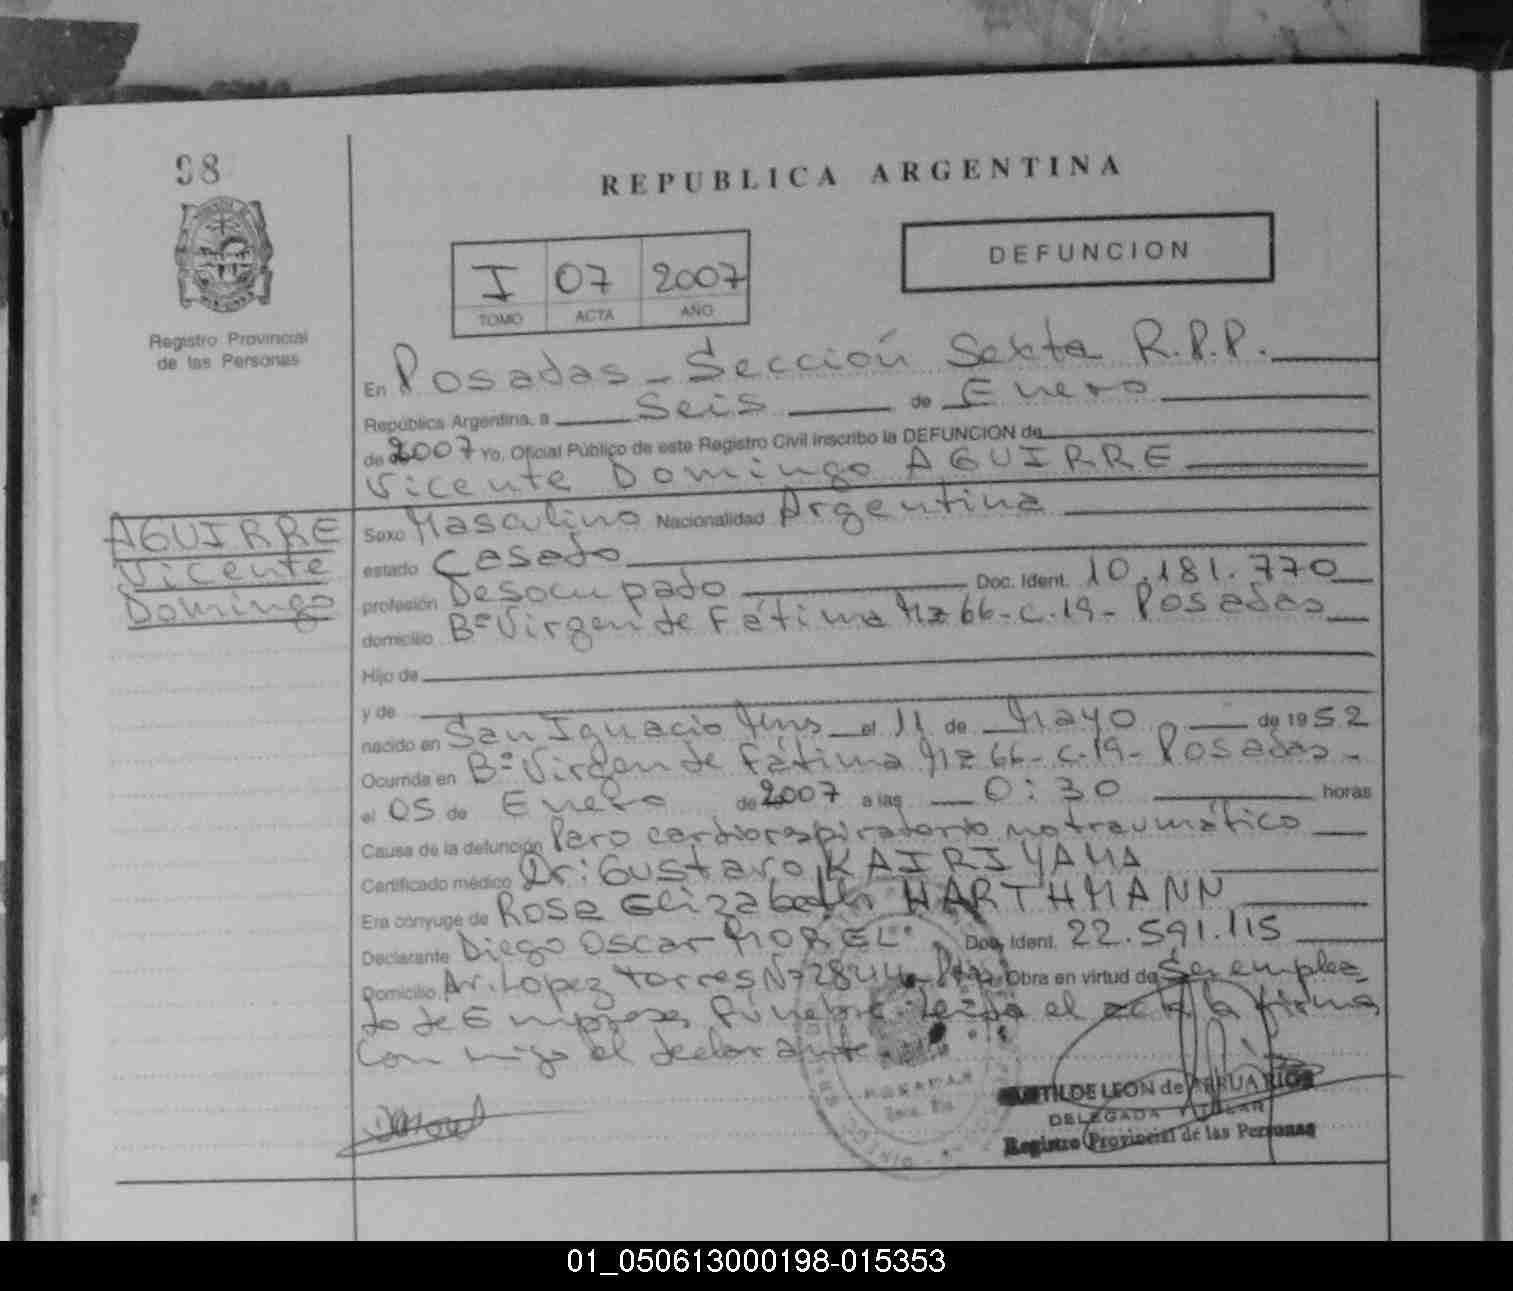 98
REPUBLICA ARGENTINA
DEFUNCION
I 07 2007
TOMO ACTA AÑO
Registro Provincial
de las Personas
En Posadas - Sección Sexta R.P.P.
República Argentina, a Seis de Enero
de 2007 Yo, Oficial Público de este Registro Civil inscribo la DEFUNCION de
Vicente Domingo AGUIRRE
AGUIRRE
Vicente
Domingo
Sexo Masculino Nacionalidad Argentina
estado Casado
profesión Desocupado Doc. Ident. 10.181.770
domicilio Bº Virgen de Fátima Mz 66 - C. 19 - Posadas
Hijo de
y de
nacido en San Ignacio Mns el 11 de Mayo de 1952
Ocurrida en Bº Virgen de Fátima Mz 66 - C. 19 - Posadas -
el 05 de Enero de 2007 a las 0:30 horas
Causa de la defunción Paro cardiorespiratorio no traumático
Certificado médico Dr: Gustavo KAIRIYAMA
Era cónyuge de Rosa Elizabeth HARTHMANN
Declarante Diego Oscar MOREL Doc. Ident. 22.591.115
Domicilio Av. Lopez Torres Nº 2844 - Pdas Obra en virtud de Ser emplea
do de Empresa Fúnebre - leída el acta la firma
con migo el declarante
POSADAS
MATILDE LEON de ARRUA RIOS
DELEGADA TITULAR
Registro Provincial de las Personas
01_050613000198-015353